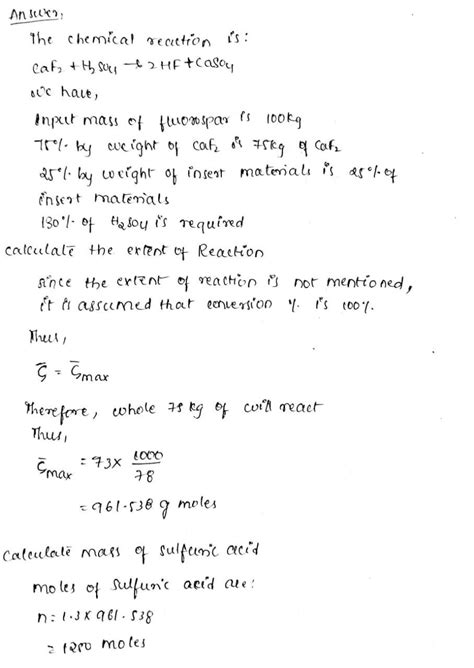 Answer:
The chemical reaction is:
CaF₂ + H₂SO₄ → 2HF + CaSO₄
we have,
Input mass of fluorospar is 100kg
75% by weight of CaF₂ is 75kg of CaF₂
25% by weight of insert materials is 25% of
insert materials
130% of H₂SO₄ is required
Calculate the extent of Reaction
since the extent of reaction is not mentioned,
it is assumed that conversion % is 100%.
Thus,
ξ̄ = ξ̄max
Therefore, whole 75 kg of will react
Thus,
ξ̄max = 73 × 1000/78
= 961.538 g moles
Calculate mass of sulfuric acid
moles of sulfuric acid are:
n = 1.3 × 961.538
= 1250 moles